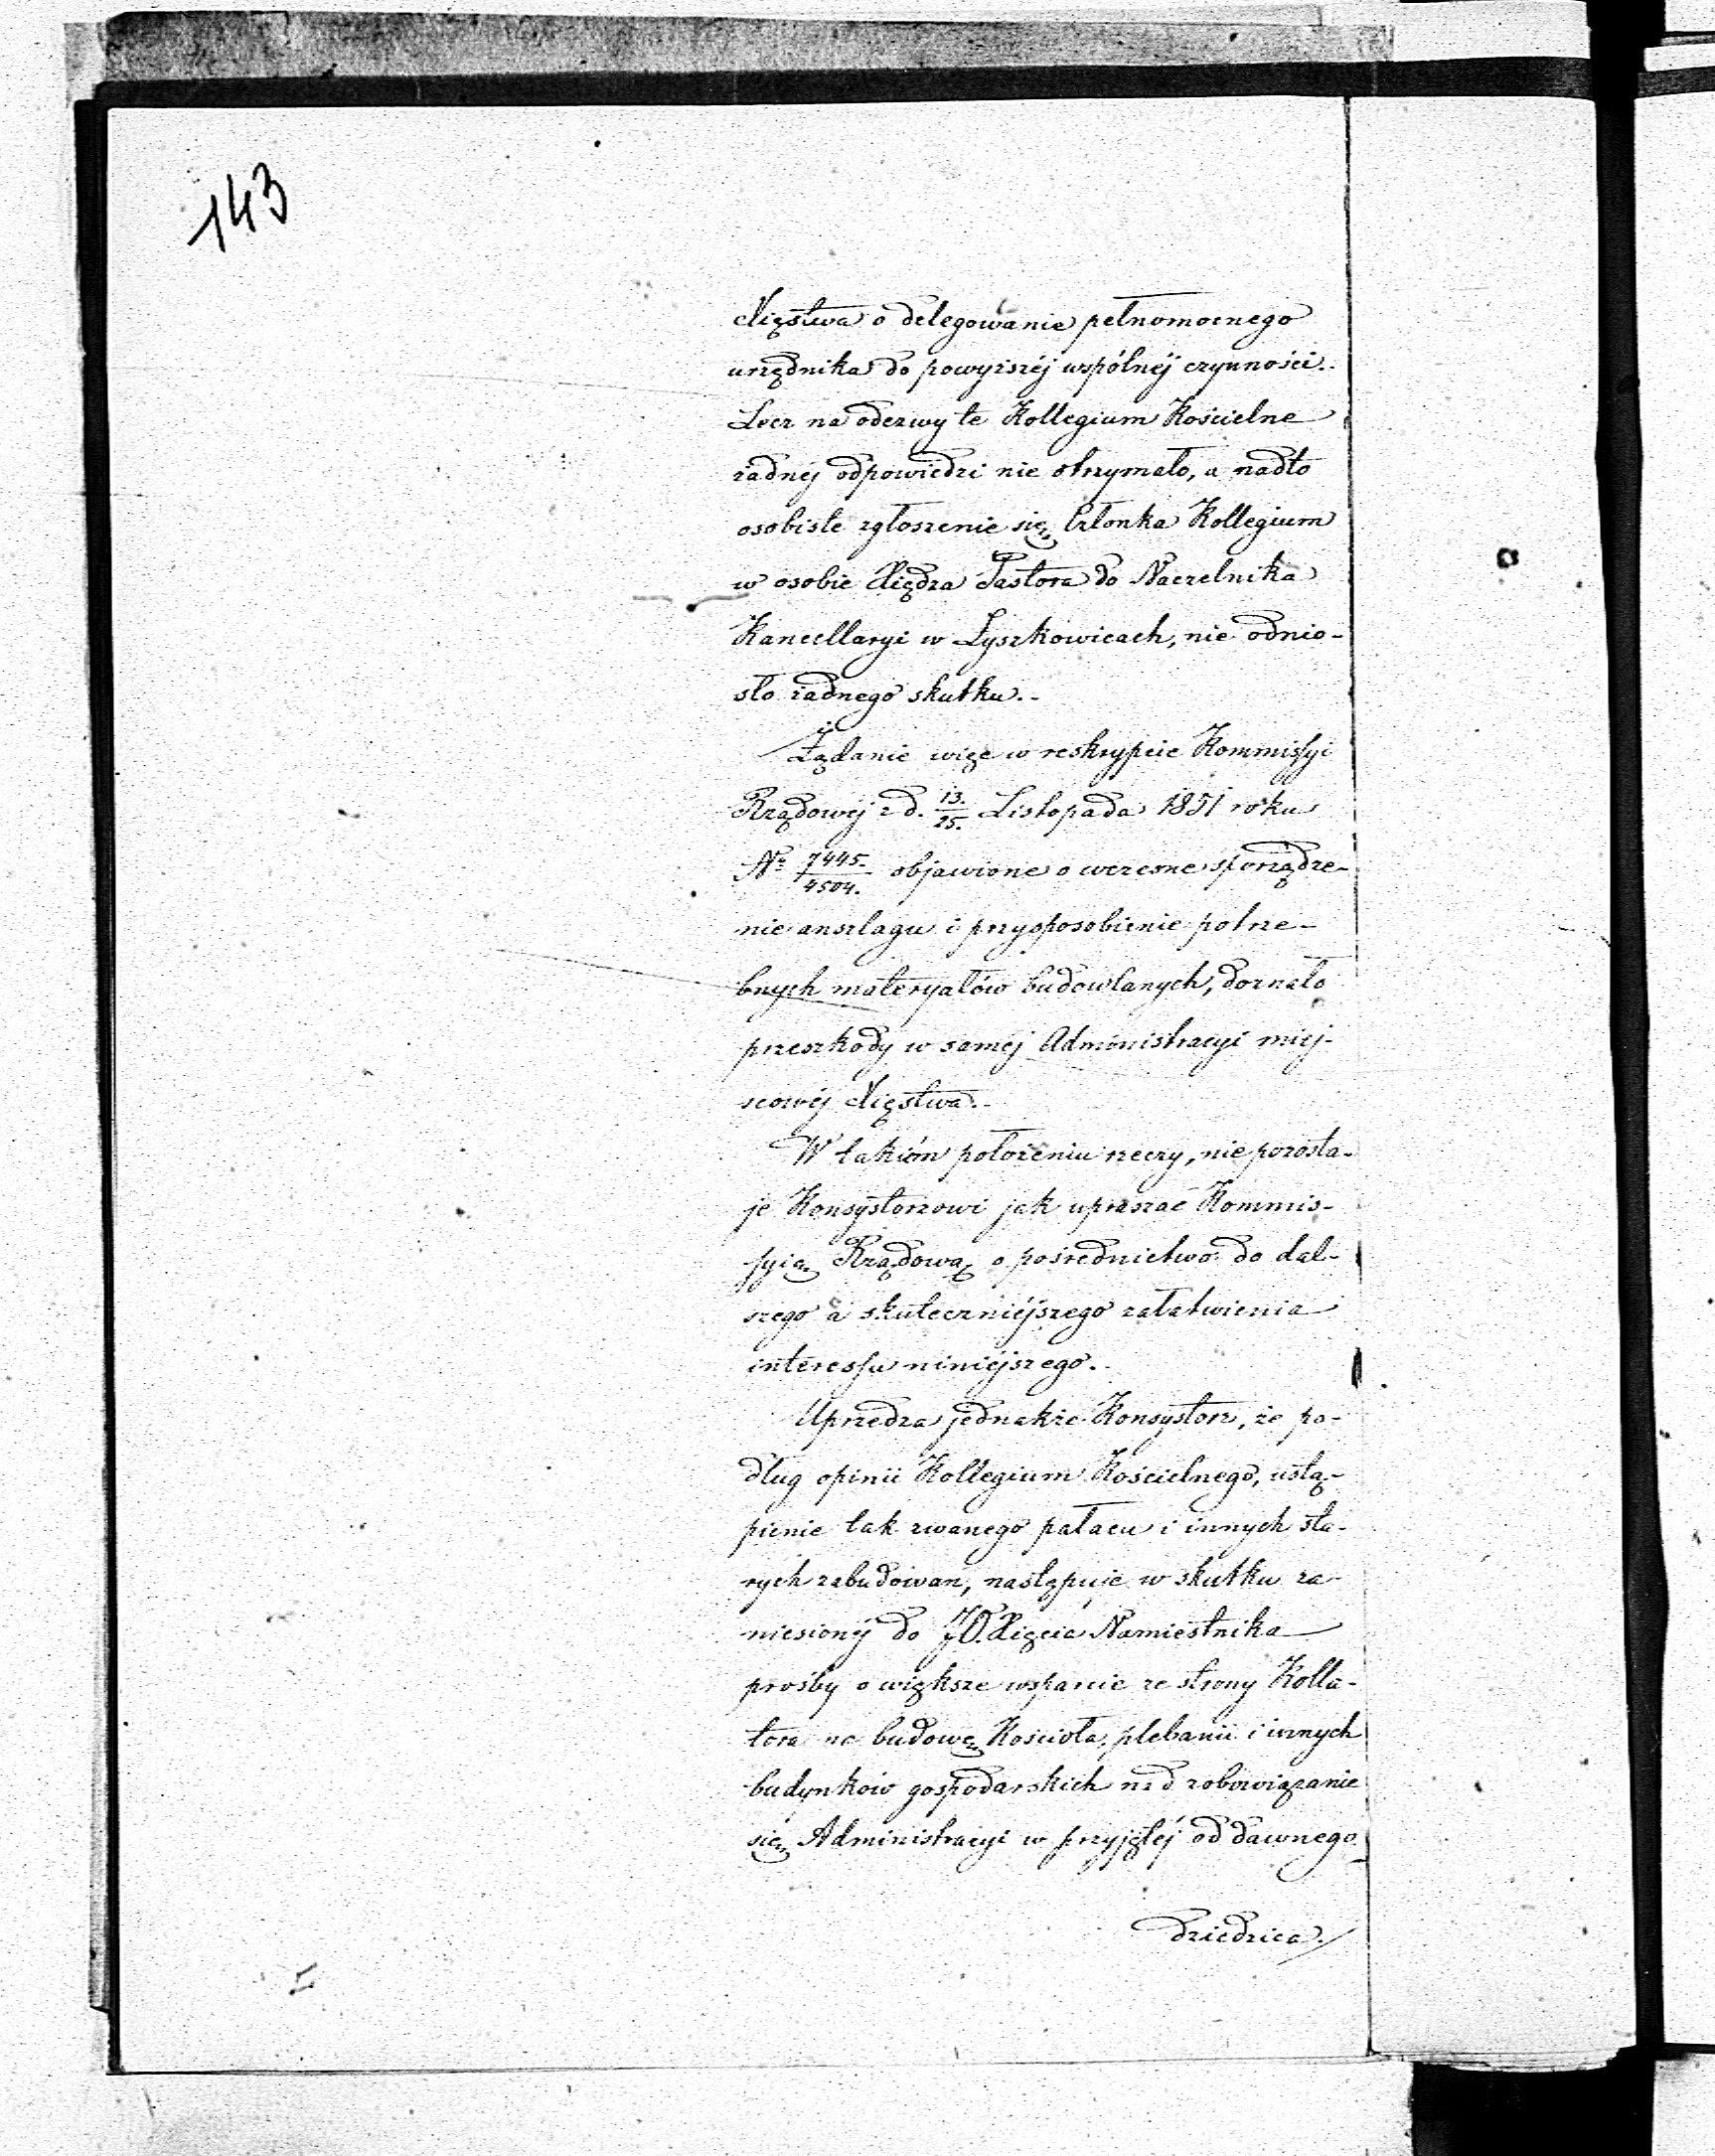 143
Xięstwa o delegowanie pełnomocnego
urzędnika do powyższéj wspólnéj czynności.
Lecz na odezwy te Kollegium Kościelne
żadnéj odpowiedzi nie otrzymało, a nadto
osobiste zgłoszenie się Członka Kollegium
w osobie Xiędza Pastora do Naczelnika
Kancellaryi w Łyszkowicach, nie odnio-
sło żadnego skutku.-
Żądanie więc w reskrypcie Kommissyi
Rządowéj z d. 13./25. Listopada 1851 roku
Nr 7445./4504. objawione o wczesne sporządze-
nie anszlagu i przysposobienie potrze-
bnych materyałów budowlanych, doznało
przeszkody w saméj Administracyi miej-
scowéj Xięstwa.-
W takiém położeniu rzeczy, nie pozosta-
je Konsystorzowi jak upraszać Kommis-
syią Rządową o pośrednictwo do dal-
szego a skuteczniéjszego załatwienia
interessu niniéjszego.
Uprzedza jednakże Konsystorz, że po-
dług opinii Kollegium Kościelnego, ustą-
pienie tak zwanego pałacu i innych sta-
rych zabudowań, następuje w skutku za-
niesionéj do JO. Xięcia Namiestnika
prośby o większe wsparcie ze strony Kolla-
tora na budowę Kościoła, plebanii i innych
budynków gospodarskich nad zobowiązanie
się Administracyi w przyjętéj od dawnego
dziedzica.